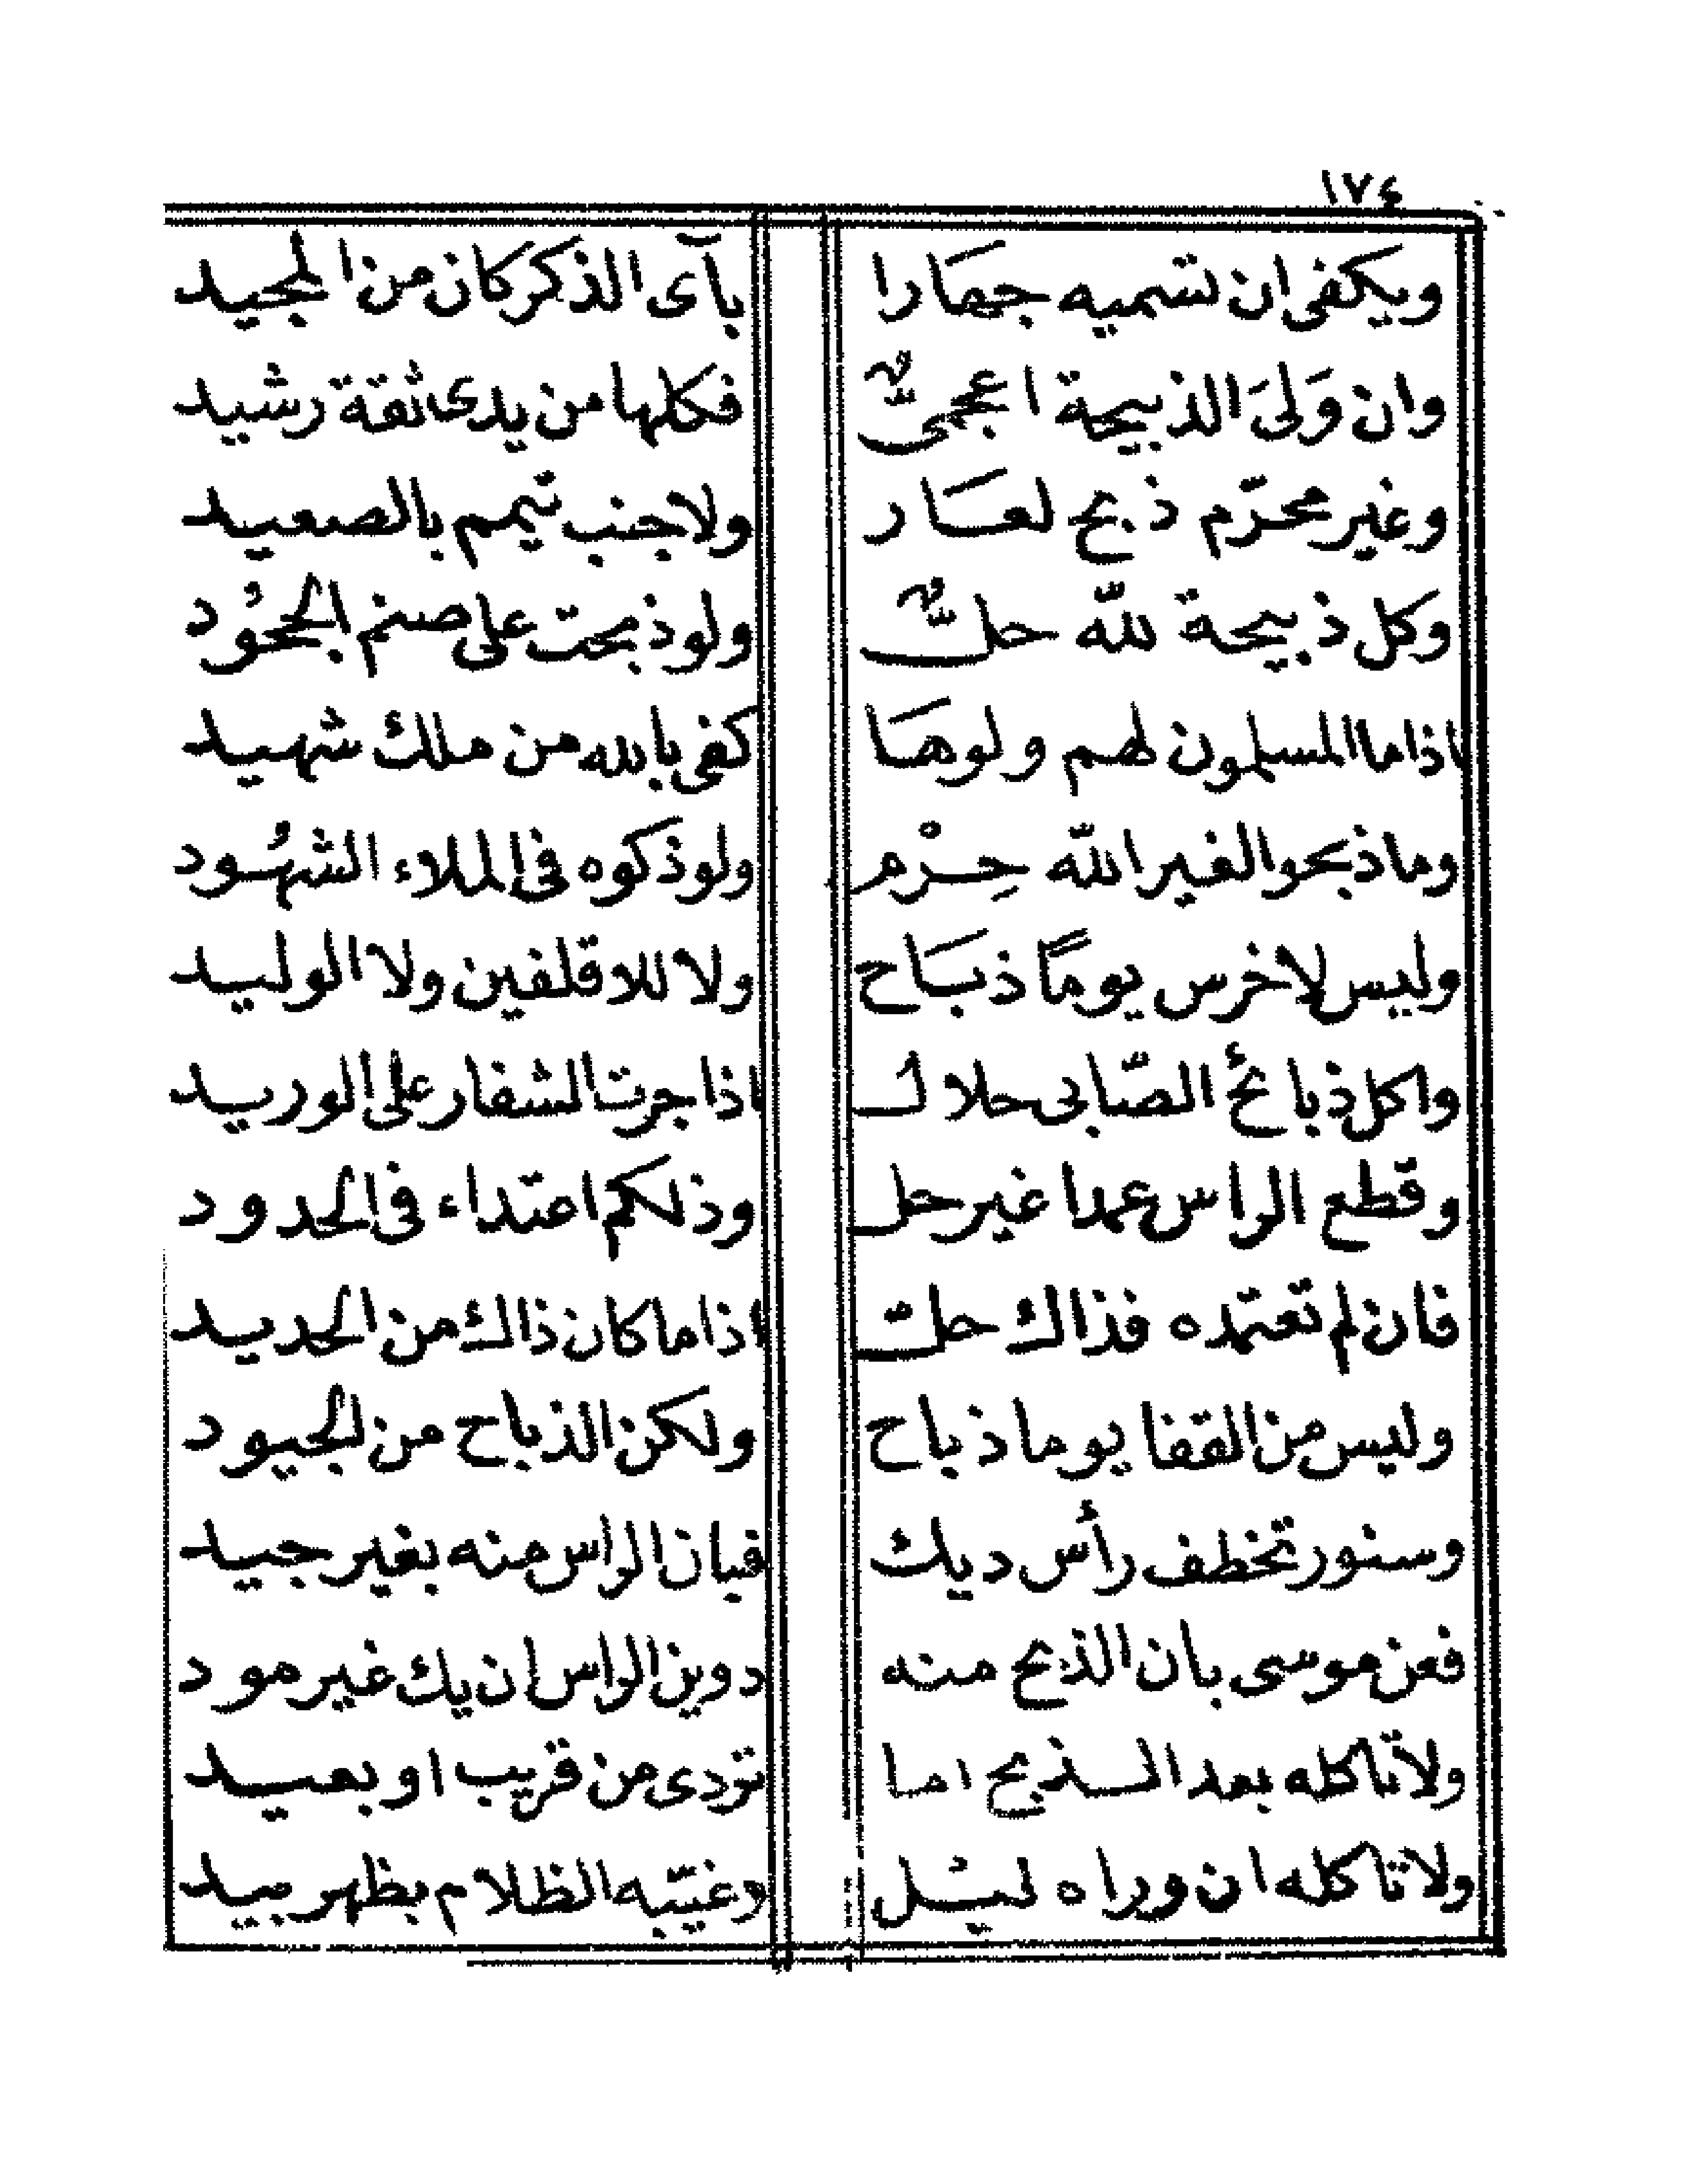 ١٧٤
ويكفى ان تسميه جهارا بآى الذكر كان من المجيد
وان وَلىَ الذبيحة اعجمىٌّ فكلها من يدى ثقة رشيد
وغير محرّم ذبح لعار ولا جنب تيمم بالصعيد
وكل ذبيحة للّه حلٌّ ولو ذبحت على صنم الجحُود
اذا ما المسلمون لهم ولوها كفى بالله من ملك شهيد
وما ذبحوا لغير اللّه حِرْم ولو ذكوه فى الملاء الشهُود
وليس لاخرس يومًا ذبَاح ولا للاقلفين ولا الوليد
واكل ذبائح الصّابى حلال اذا جرت الشفار على الوريد
وقطع الراس عمدا غير حل وذلكم اعتداء فى الحدود
فان لم تعتمده فذاك حلّ اذا ما كان ذاك من الحديد
وليس من القفا يوما ذباح ولكن الذباح من الجيود
وسنور تخطف رأس ديك فبان الراس منه بغير جيد
فعن موسى بان الذبح منه دوين الراس ان يك غير مود
ولا تاكله بعد الذبح اما تردى من قريب او بعيد
ولا تاكله ان وراه ليل وغيّبه الظلام بظهر بيد